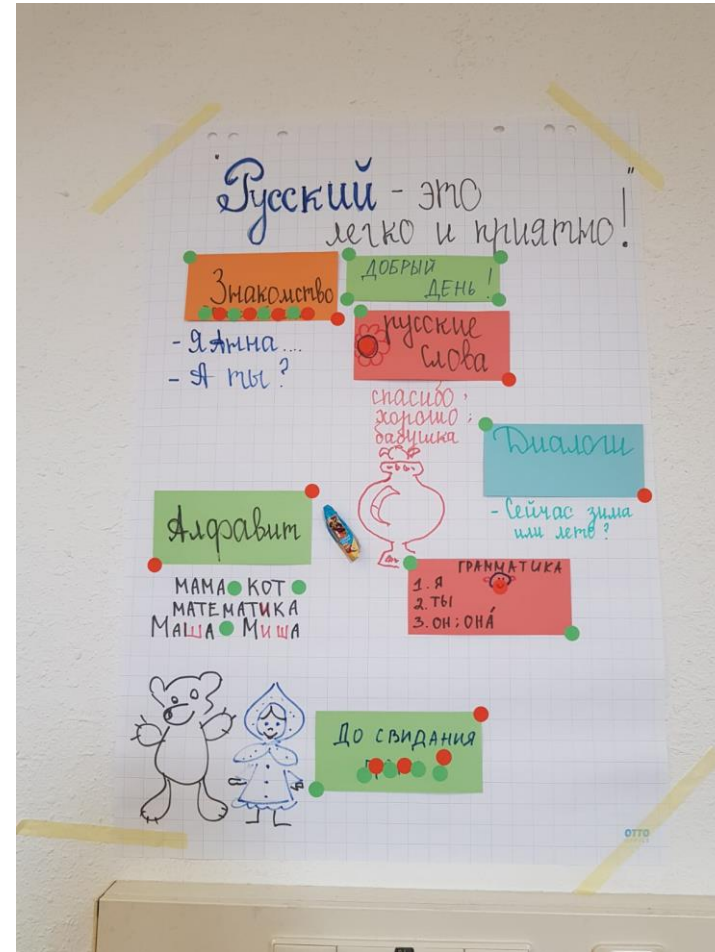 "Русский - это
легко и приятно!"
Знакомство
ДОБРЫЙ
ДЕНЬ!
- Я Анна....
- А ты?
русские
слова
спасибо,
хорошо,
бабушка
Диалоги
- Сейчас зима
или лето?
Алфавит
МАМА КОТ
МАТЕМАТИКА
МАША МИША
ГРАММАТИКА
1. Я
2. ТЫ
3. ОН; ОНА́
ДО СВИДАНИЯ
OTTO